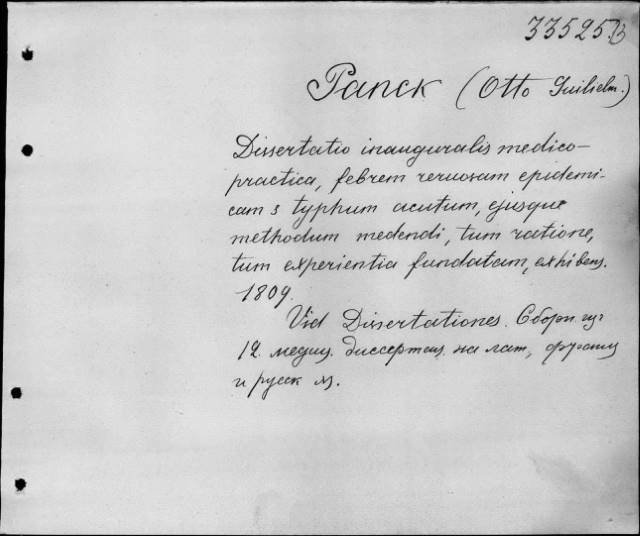 33525.3
Panck (Otto Guilielm.)
Dissertatio inauguralis medico-
practica, febrem nervosam epidemi-
cam s typhum acutum, ejusque
methodum medendi, tum ratione,
tum experientia fundatam, exhibens.
1809.
Vid Dissertationes. Сборн. из
12. медиц. диссертац. на лат., франц
и русск яз.